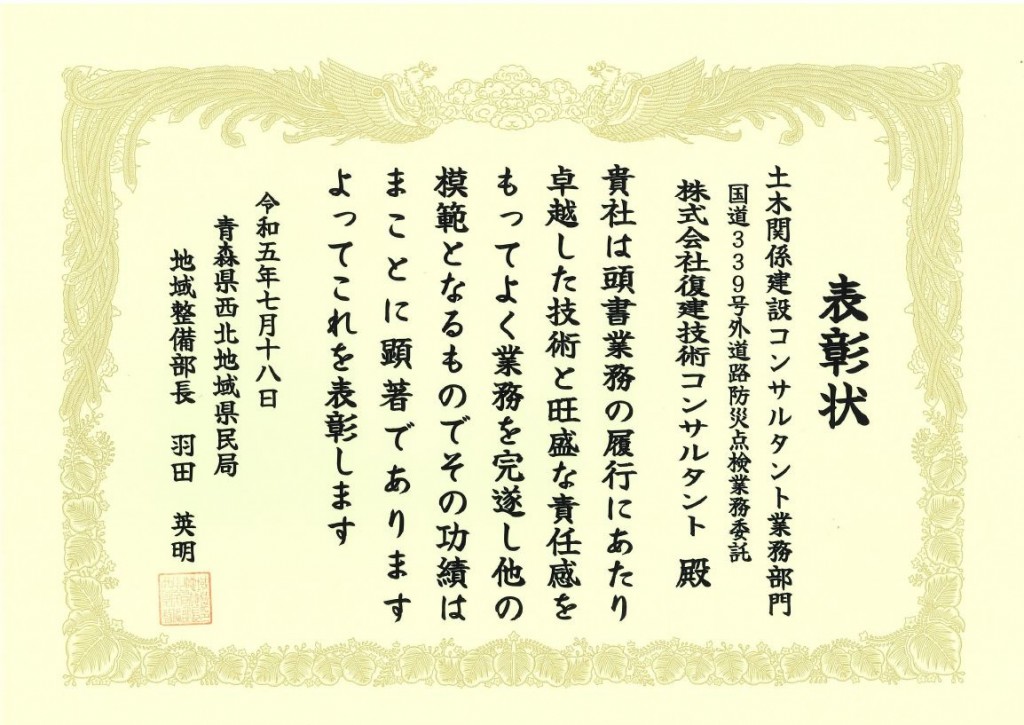 表彰状
土木関係建設コンサルタント業務部門
国道339号外道路防災点検業務委託
株式会社復建技術コンサルタント 殿
貴社は頭書業務の履行にあたり
卓越した技術と旺盛な責任感を
もってよく業務を完遂し他の
模範となるものでその功績は
まことに顕著であります
よってこれを表彰します
令和五年七月十八日
青森県西北地域県民局
地域整備部長 羽田 英明